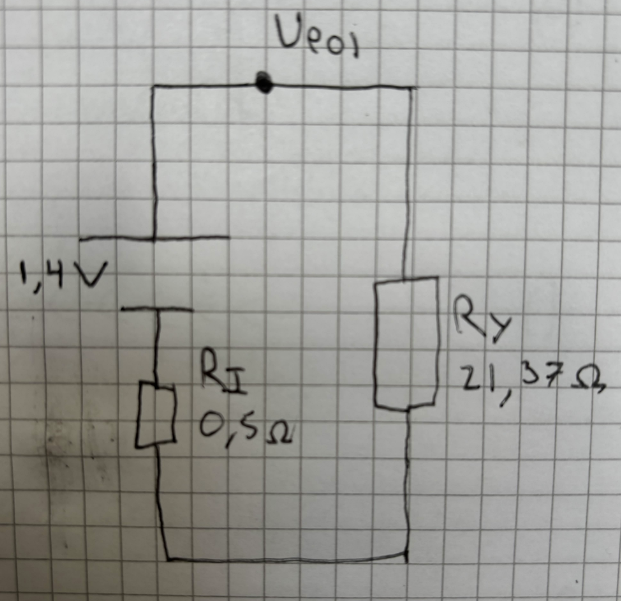 Upol
1,4V
RI
0,5Ω
Ry
21,37Ω